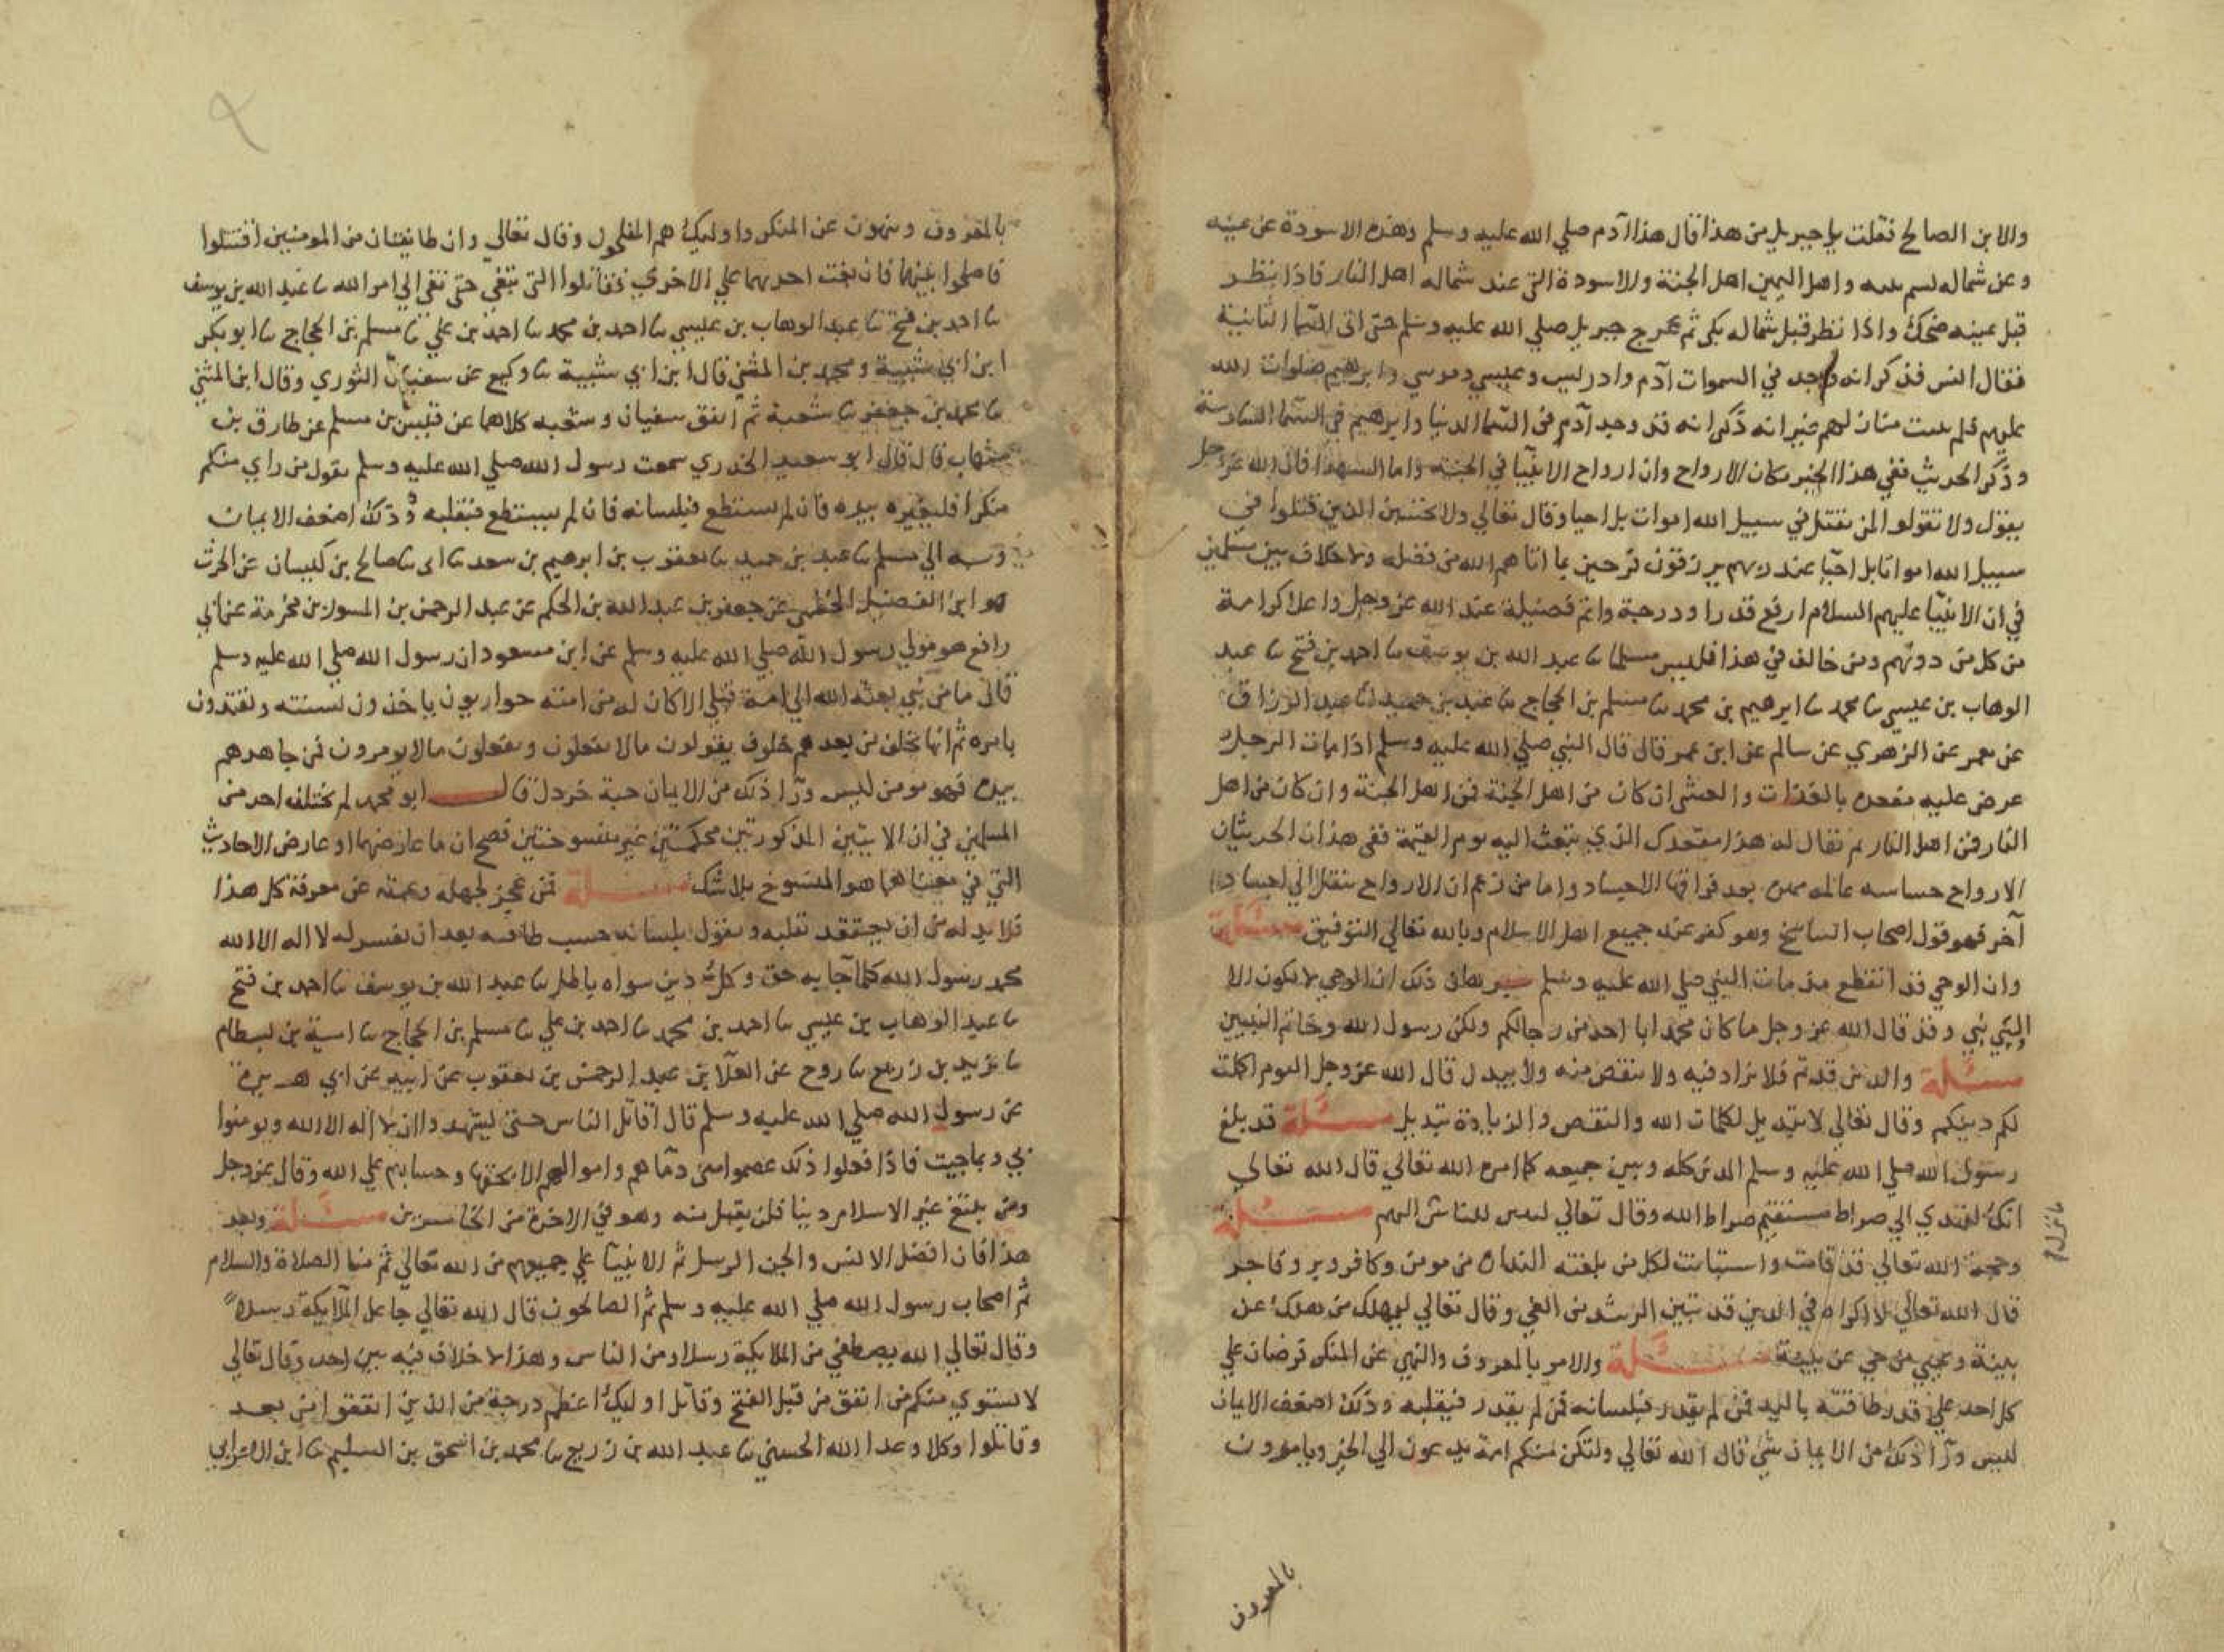 والابن الصالح فقلت يا جبريل من هذا قال هذا آدم صلي الله عليه وسلم وهذه الاسودة عن يمينه
وعن شماله نسم بنيه واهل اليمين اهل الجنة والاسودة التي عند شماله اهل النار فاذا نظر
قبل يمينه ضحك واذا نظر قبل شماله بكي ثم عرج جبريل صلي الله عليه وسلم حتى اتى السما الثانية
فقال انس فذكر انه وجد في السموات آدم وادريس وعيسي وموسي وابرهيم صلوات الله
عليهم فلم يثبت منازلهم غير انه ذكر انه قد وجد آدم في السما الدنيا وابرهيم في السما السادسة
وذكر الحديث ففي هذا الخبر مكان الارواح وان ارواح الانبيا في الجنة واما الشهدا فان الله عز وجل
يقول ولا تقولوا لمن يقتل في سبيل الله اموات بل احيا وقال تعالي ولا تحسبن الذين قتلوا في
سبيل الله امواتا بل احيا عند ربهم يرزقون فرحين بما اتاهم الله من فضله ولا خلاف بين مسلمين
في ان الانبيا عليهم السلام ارفع قدرا ودرجة واتم فضيلة عند الله عز وجل واعلا كرامة
من كل من دونهم ومن خالف في هذا فليس مسلما ثنا عبد الله بن يوسف ثنا احمد بن فتح ثنا عبد
الوهاب بن عيسي ثنا محمد ثنا ابرهيم بن محمد ثنا مسلم بن الحجاج ثنا عبد بن حميد ثنا عبد الرزاق
عن معمر عن الزهري عن سالم عن ابن عمر قال قال النبي صلي الله عليه وسلم اذا مات الرجل
عرض عليه مقعده بالغداة والعشي ان كان من اهل الجنة فمن اهل الجنة وان كان من اهل
النار فمن اهل النار ثم يقال له هذا مقعدك الذي تبعث اليه يوم القيمة ففي هذان الحديثان
الارواح حساسه عالمه بعد فراقها الاجساد واما من زعم ان الارواح تنقل الي اجساد
آخر فهو قول اصحاب التناسخ وهو كفر عند جميع اهل الاسلام وبالله تعالي التوفيق مسئلة
وان الوحي قد انقطع مذ مات النبي صلي الله عليه وسلم برهان ذلك ان الوحي لا يكون الا
الي نبي وقد قال الله عز وجل ما كان محمد ابا احد من رجالكم ولكن رسول الله وخاتم النبيين
مسئلة والدين قد تم فلا يزاد فيه ولا ينقص منه ولا يبدل قال الله عز وجل اليوم اكملت
لكم دينكم وقال تعالي لا تبديل لكلمات الله والنقص والزيادة تبديل مسئلة قد بلغ
رسول الله صلي الله عليه وسلم الدين كله وبين جميعه كما امره الله تعالي قال الله تعالي
انك لتهدي الي صراط مستقيم صراط الله وقال تعالي لتبين للناس اليهم مسئلة
ما نزل
وحجة الله تعالي قد قامت واستبانت لكل من بلغته النذارة من مومن وكافر وبر وفاجر
قال الله تعالي لا اكراه في الدين قد تبين الرشد من الغي وقال تعالي ليهلك من هلك عن
بينة ويحيي من حي عن بينة مسئلة والامر بالمعروف والنهي عن المنكر فرضان علي
كل احد علي قدر طاقته باليد فمن لم يقدر فبلسانه فمن لم يقدر فبقلبه وذلك اضعف الايمان
ليس ورآ ذلك من الايمان شي قال الله تعالي ولتكن منكم امة يدعون الي الخير ويامرون
بالمعروف
بالمعروف وينهون عن المنكر واوليك هم المفلحون وقال تعالي وان طايفتان من المومنين اقتتلوا
فاصلحوا بينهما فان بغت احديهما علي الاخري فقاتلوا التي تبغي حتى تفي الي امر الله ثنا عبد الله بن يوسف
ثنا احمد بن فتح ثنا عبد الوهاب بن عيسي ثنا احمد بن محمد ثنا احمد بن علي ثنا مسلم بن الحجاج ثنا ابو بكر
ابن ابي شيبة ومحمد بن المثني قال ابن ابي شيبة ثنا وكيع عن سفيان الثوري وقال ابن المثني
ثنا محمد بن جعفر ثنا شعبة ثم اتفق سفيان وشعبه كلاهما عن قيس بن مسلم عن طارق بن
شهاب قال قال ابو سعيد الخدري سمعت رسول الله صلي الله عليه وسلم يقول من راي منكم
منكرا فليغيره بيده فان لم يستطع فبلسانه فان لم يستطع فبقلبه وذلك اضعف الايمان
وبه الي مسلم ثنا عبد بن حميد ثنا يعقوب بن ابرهيم بن سعد ثنا ابي ثنا صالح بن كيسان عن الحرث
هو ابن الفضيل الخطمي عن جعفر بن عبد الله بن الحكم عن عبد الرحمن بن المسور بن مخرمة عن ابي
رافع هو مولي رسول الله صلي الله عليه وسلم عن ابن مسعود ان رسول الله صلي الله عليه وسلم
قال ما من نبي بعثه الله الي امة قبلي الا كان له من امته حواريون ياخذون بسنته ويقتدون
بامره ثم انها تخلف من بعدهم خلوف يقولون ما لا يفعلون ويفعلون ما لا يومرون فمن جاهدهم
بيده فهو مومن ليس ورآ ذلك من الايمان حبة خردل قال ابو محمد لم يختلف احد من
المسلمين في ان الايتين المذكورتين محكمتين غير منسوختين فصح ان ما عارضهما او عارض الاحاديث
التي في معناهما هو المنسوخ بلا شك مسئلة فمن عجز لجهله وعجمته عن معرفة كل هذا
فلا بد له من ان يعتقد بقلبه ويقول بلسانه حسب طاقته بعد ان يفسر له لا اله الا الله
محمد رسول الله كلما جا به حق وكل دين سواه باطل ثنا عبد الله بن يوسف ثنا احمد بن فتح
ثنا عبد الوهاب بن عيسي ثنا احمد بن محمد ثنا احمد بن علي ثنا مسلم بن الحجاج ثنا امية بن بسطام
ثنا يزيد بن زريع ثنا روح عن العلآ بن عبد الرحمن بن يعقوب عن ابيه عن ابي هريرة
عن رسول الله صلي الله عليه وسلم قال اقاتل الناس حتى يشهدوا ان لا اله الا الله ويومنوا
بي وبما جيت فاذا فعلوا ذلك عصموا مني دمآهم واموالهم الا بحقها وحسابهم علي الله وقال عز وجل
ومن يبتغ غير الاسلام دينا فلن يقبل منه وهو في الاخرة من الخاسرين مسئلة وبعد
هذا فان افضل الانس والجن الرسل ثم الانبيآ علي جميعهم من الله تعالي ثم منا الصلاة والسلام
ثم اصحاب رسول الله صلي الله عليه وسلم ثم الصالحون قال الله تعالي جاعل الملآيكة رسلا
وقال تعالي الله يصطفي من الملايكة رسلا ومن الناس وهذا لا خلاف فيه بين احد وقال تعالي
لا يستوي منكم من انفق من قبل الفتح وقاتل اوليك اعظم درجة من الذين انفقوا من بعد
وقاتلوا وكلا وعد الله الحسني ثنا عبد الله بن ربيع ثنا محمد بن اسحق بن السليم ثنا ابن الاعرابي